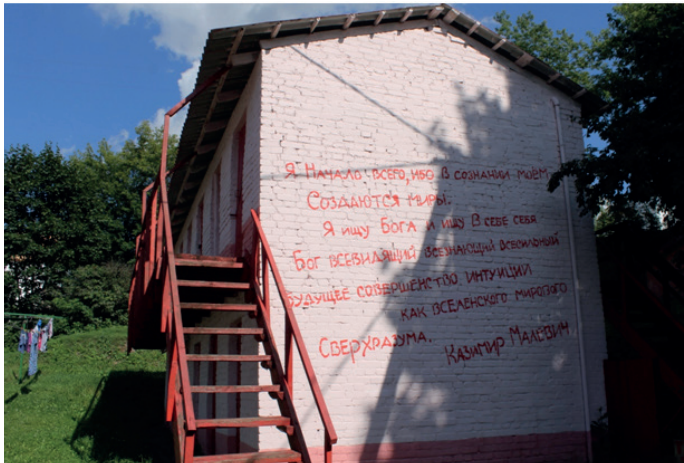 Я Начало всего, ибо в сознании моём
Создаются миры.
Я ищу Бога я ищу В себе себя
Бог всевидящий всезнающий всесильный
Будущее совершенство интуиции
как вселенского мирового
Сверхразума.
Казимир Малевич